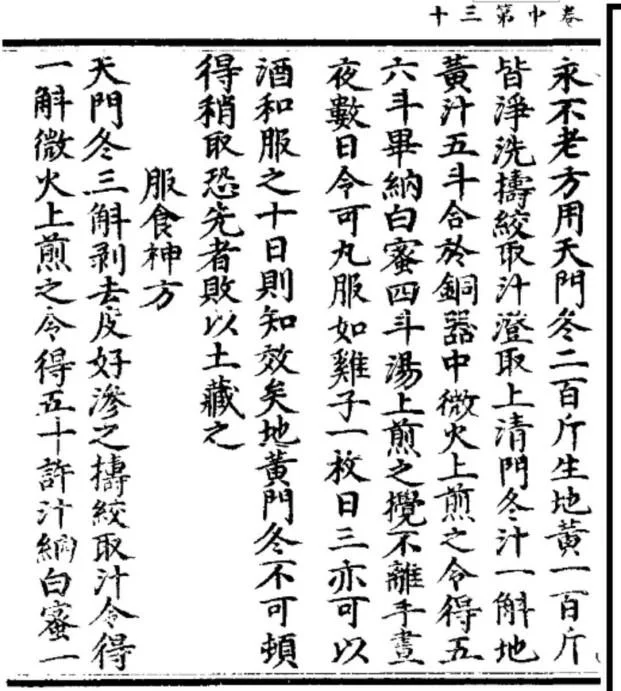 卷中第三十
永不老方用天門冬二百斤生地黃一百斤
皆淨洗擣絞取汁澄取上清門冬汁一斛地
黃汁五斗合於銅器中微火上煎之令得五
六斗畢納白蜜四斗湯上煎之攪不離手晝
夜數日令可丸服如雞子一枚日三亦可以
酒和服之十日則知效矣地黃門冬不可頓
得稍取恐先者敗以土藏之
服食神方
天門冬三斛剥去皮好滲之擣絞取汁令得
一斛微火上煎之令得五十許汁納白蜜一